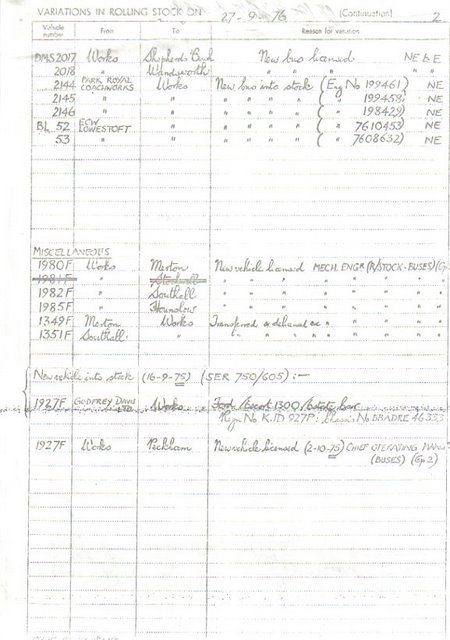 VARIATIONS IN ROLLING STOCK ON 27-9-76 (Continuation) 2
Vehicle number From To Reason for variation
DMS 2017 Works Shepherds Bush New bus licensed NE & E
2018 " Wandsworth " " " " "
2144 PARK ROYAL COACHWORKS Works New bus into stock (Eng No 199461) NE
2145 " " " " " " ( " 199458) NE
2146 " " " " " " ( " 198429) NE
BL 52 ECW LOWESTOFT " " " " " ( " 7610453) NE
53 " " " " " " ( " 7608632) NE
MISCELLANEOUS
1980F Works Merton New vehicle licensed MECH. ENGR (R/STOCK-BUSES) (Gp
1981F " Stockwell " " " " " "
1982F " Southall " " " " " "
1985F " Hounslow " " " " " "
1349F Merton Works Transferred or delicensed ex "
1351F Southall " " " " " " "
New vehicle into stock (16-9-75) (SER 750/605) :-
1927F GODFREY DAVIS LTD Works Ford Escort 1300 Estate Car
Regn No KJD 927P: Chassis No BBADRE 46333
1927F Works Peckham New vehicle licensed (2-10-75) CHIEF OPERATING MANR
(BUSES) (Gp 2)